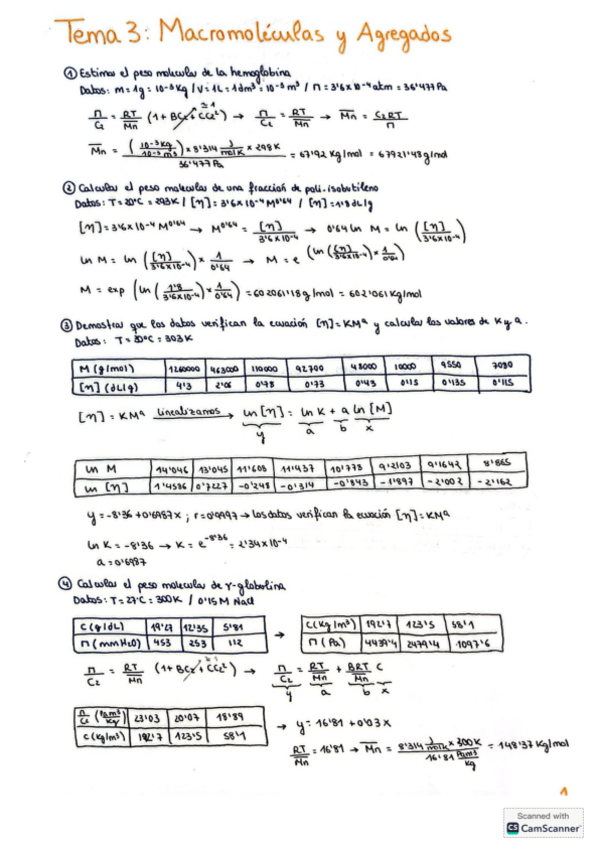 Tema 3: Macromoléculas y Agregados
① Estimar el peso molecular de la hemoglobina
Datos: m=1g=10⁻³Kg / V=1L=1dm³=10⁻³m³ / Π=3'6x10⁻⁴atm=36'477Pa
Π/C₂ = RT/M̅n (1+BC₂+CC₂²) → Π/C₂ = RT/M̅n → M̅n = C₂RT/Π
≃1
M̅n = (10⁻³Kg/10⁻³m³) x 8'314 J/molK x 298K / 36'477Pa = 67'92 Kg/mol = 67921'48 g/mol
② Calcular el peso molecular de una fracción de poli-isobutileno
Datos: T=20ºC=293K / [η]=3'6x10⁻⁴M⁰'⁶⁴ / [η]=1'8dL/g
[η]=3'6x10⁻⁴M⁰'⁶⁴ → M⁰'⁶⁴ = [η]/3'6x10⁻⁴ → 0'64 ln M = ln ([η]/3'6x10⁻⁴)
ln M = ln ([η]/3'6x10⁻⁴) x 1/0'64 → M = e^(ln([η]/3'6x10⁻⁴) x 1/0'64)
M = exp (ln (1'8/3'6x10⁻⁴) x 1/0'64) = 602061'18 g/mol = 602'061 Kg/mol
③ Demostrar que los datos verifican la ecuación [η]=KMᵃ y calcular los valores de K y a.
Datos: T=30ºC=303K
M (g/mol) 1260000 463000 110000 92700 48000 10000 9550 7080
[η] (dL/g) 4'3 2'06 0'78 0'73 0'43 0'15 0'135 0'115
[η] = KMᵃ linealizamos → ln [η] = ln K + a ln [M]
y a b x
ln M 14'046 13'045 11'608 11'437 10'778 9'2103 9'1642 8'865
ln [η] 1'4586 0'7227 -0'248 -0'314 -0'843 -1'897 -2'002 -2'162
y=-8'36+0'6987x ; r=0'9997 → los datos verifican la ecuación [η]=KMᵃ
ln K = -8'36 → K = e⁻⁸'³⁶ = 2'34x10⁻⁴
a = 0'6987
④ Calcular el peso molecular de γ-globulina
Datos: T=27ºC=300K / 0'15M NaCl
C (g/dL) 19'27 12'35 5'81
Π (mmH₂O) 453 253 112
→
C (Kg/m³) 192'7 123'5 58'1
Π (Pa) 4439'4 2479'4 1097'6
Π/C₂ = RT/M̅n (1+BC₂+CC₂²) → Π/C₂ = RT/M̅n + BRT/M̅n C
≃1
y a b x
Π/C₂ (Pam³/Kg) 23'03 20'07 18'89
C (Kg/m³) 192'7 123'5 58'1
→ y=16'81+0'03x
RT/M̅n = 16'81 → M̅n = 8'314 J/molK x 300K / 16'81 Pam³/Kg = 148'37 Kg/mol
1
Scanned with
CS CamScanner